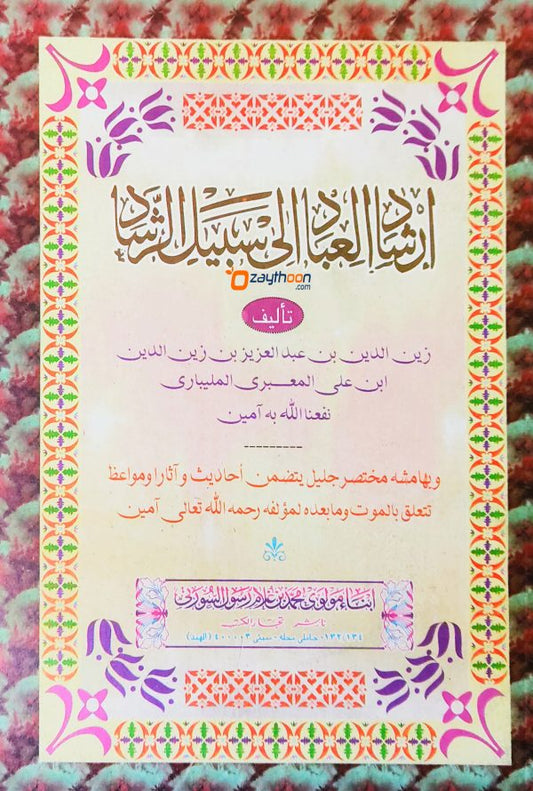 إرشاد العباد إلى سبيل الرشاد
zaythoon
.com
تأليف
زين الدين بن عبد العزيز بن زين الدين
ابن على المعبرى المليبارى
نفعنا الله به آمين
وبهامشه مختصر جليل يتضمن أحاديث و آثارا ومواعظ
تتعلق بالموت وما بعده لمؤلفه رحمه الله تعالى آمين
ابناء مولوى محمد بن غلام رسول السورتى
ناشر تجار الكتب
١٣٢/١٣٤، جاملى محله - ممبئى ٤٠٠٠٠٣ (الهند)